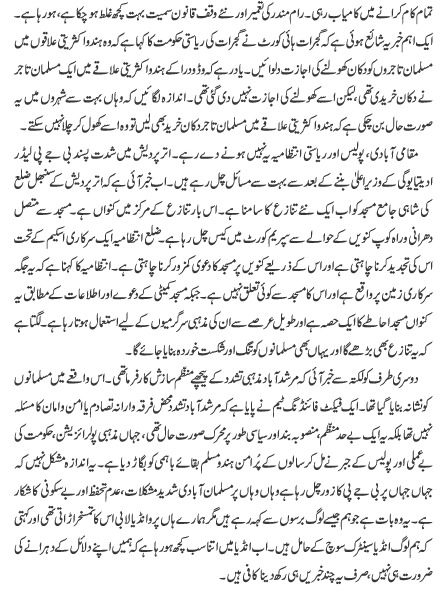 تمام کام کرانے میں کامیاب رہی۔ رام مندر کی تعمیر اور نئے وقف قانون سمیت بہت کچھ غلط ہو چکا ہے، ہو رہا ہے۔
ایک اہم خبر یہ شائع ہوئی ہے کہ گجرات ہائی کورٹ نے گجرات کی ریاستی حکومت کا کہا ہے کہ وہ ہندو اکثریتی علاقوں میں
مسلمان تاجروں کو دکان کھولنے کی اجازت دلوائیں۔ یاد رہے کہ وڈودرا کے ہندو اکثریتی علاقے میں ایک مسلمان تاجر
نے دکان خریدی تھی، لیکن اسے کھولنے کی اجازت نہیں دی گئی تھی۔ اندازہ لگائیں کہ وہاں بہت سے شہروں میں یہ
صورت حال بن چکی ہے کہ ہندو اکثریتی علاقے میں مسلمان تاجر دکان خرید بھی لیں تو وہ اسے کھول کر چلا نہیں سکتے۔
مقامی آبادی، پولیس اور ریاستی انتظامیہ یہ نہیں ہونے دے رہے۔ اتر پردیش میں شدت پسند بی جے پی لیڈر
ادیتیا یوگی کے وزیر اعلیٰ بننے کے بعد سے بہت سے مسائل چل رہے ہیں۔ اب خبر آئی ہے کہ اتر پردیش کے سنبھل ضلع
کی شاہی جامع مسجد کو اب ایک نئے تنازع کا سامنا ہے۔ اس بار تنازع کے مرکز میں کنواں ہے۔ مسجد سے متصل
دھرانی وراہ کوپ کنویں کے حوالے سے سپریم کورٹ میں کیس چل رہا ہے۔ ضلع انتظامیہ ایک سرکاری اسکیم کے تحت
اس کی تجدید کرنا چاہتی ہے اور اس کے ذریعے کنویں پر مسجد کا دعویٰ کمزور کرنا چاہتی ہے۔ انتظامیہ کا کہنا ہے کہ یہ جگہ
سرکاری زمین پر واقع ہے اور اس کا مسجد سے کوئی تعلق نہیں ہے۔ جبکہ مسجد کمیٹی کے دعوے اور اطلاعات کے مطابق یہ
کنواں مسجد احاطے کا ایک حصہ ہے اور طویل عرصے سے ان کی مذہبی سرگرمیوں کے لیے استعمال ہوتا رہا ہے۔ لگتا ہے
کہ یہ تنازع بھی بڑھے گا اور یہاں بھی مسلمانوں کو تنگ اور شکست خوردہ بنایا جائے گا۔
دوسری طرف کولکتہ سے خبر آئی کہ مرشد آباد مذہبی تشدد کے پیچھے منظم سازش کارفرما تھی۔ اس واقعے میں مسلمانوں
کو نشانہ بنایا گیا تھا۔ ایک فیکٹ فائنڈنگ ٹیم نے پایا ہے کہ مرشد آباد تشدد محض فرقہ وارانہ تصادم یا امن و امان کا مسئلہ
نہیں تھا بلکہ یہ ایک بے حد منظم، منصوبہ بند اور سیاسی طور پر محرک صورت حال تھی، جہاں مذہبی پولرائزیشن، حکومت کی
بے عملی اور پولیس کے جبر نے مل کر سالوں کے پُرامن ہندو مسلم بقائے باہمی کو بگاڑ دیا ہے۔ یہ اندازہ مشکل نہیں کہ
جہاں جہاں پر بی جے پی کا زور چل رہا ہے وہاں وہاں پر مسلمان آبادی شدید مشکلات، عدم تحفظ اور بے سکونی کا شکار
ہے۔ یہ وہ بات ہے جو ہم جیسے لوگ برسوں سے کہہ رہے ہیں مگر ہمارے ہاں پرو انڈیا لابی اس کا تمسخر اڑاتی تھی اور کہتی
کہ ہم لوگ انڈیا سینٹرک سوچ کے حامل ہیں۔ اب انڈیا میں اتنا سب کچھ ہو رہا ہے کہ ہمیں اپنے دلائل کے دہرانے کی
ضرورت ہی نہیں، صرف یہ چند خبریں ہی رکھ دینا کافی ہیں۔